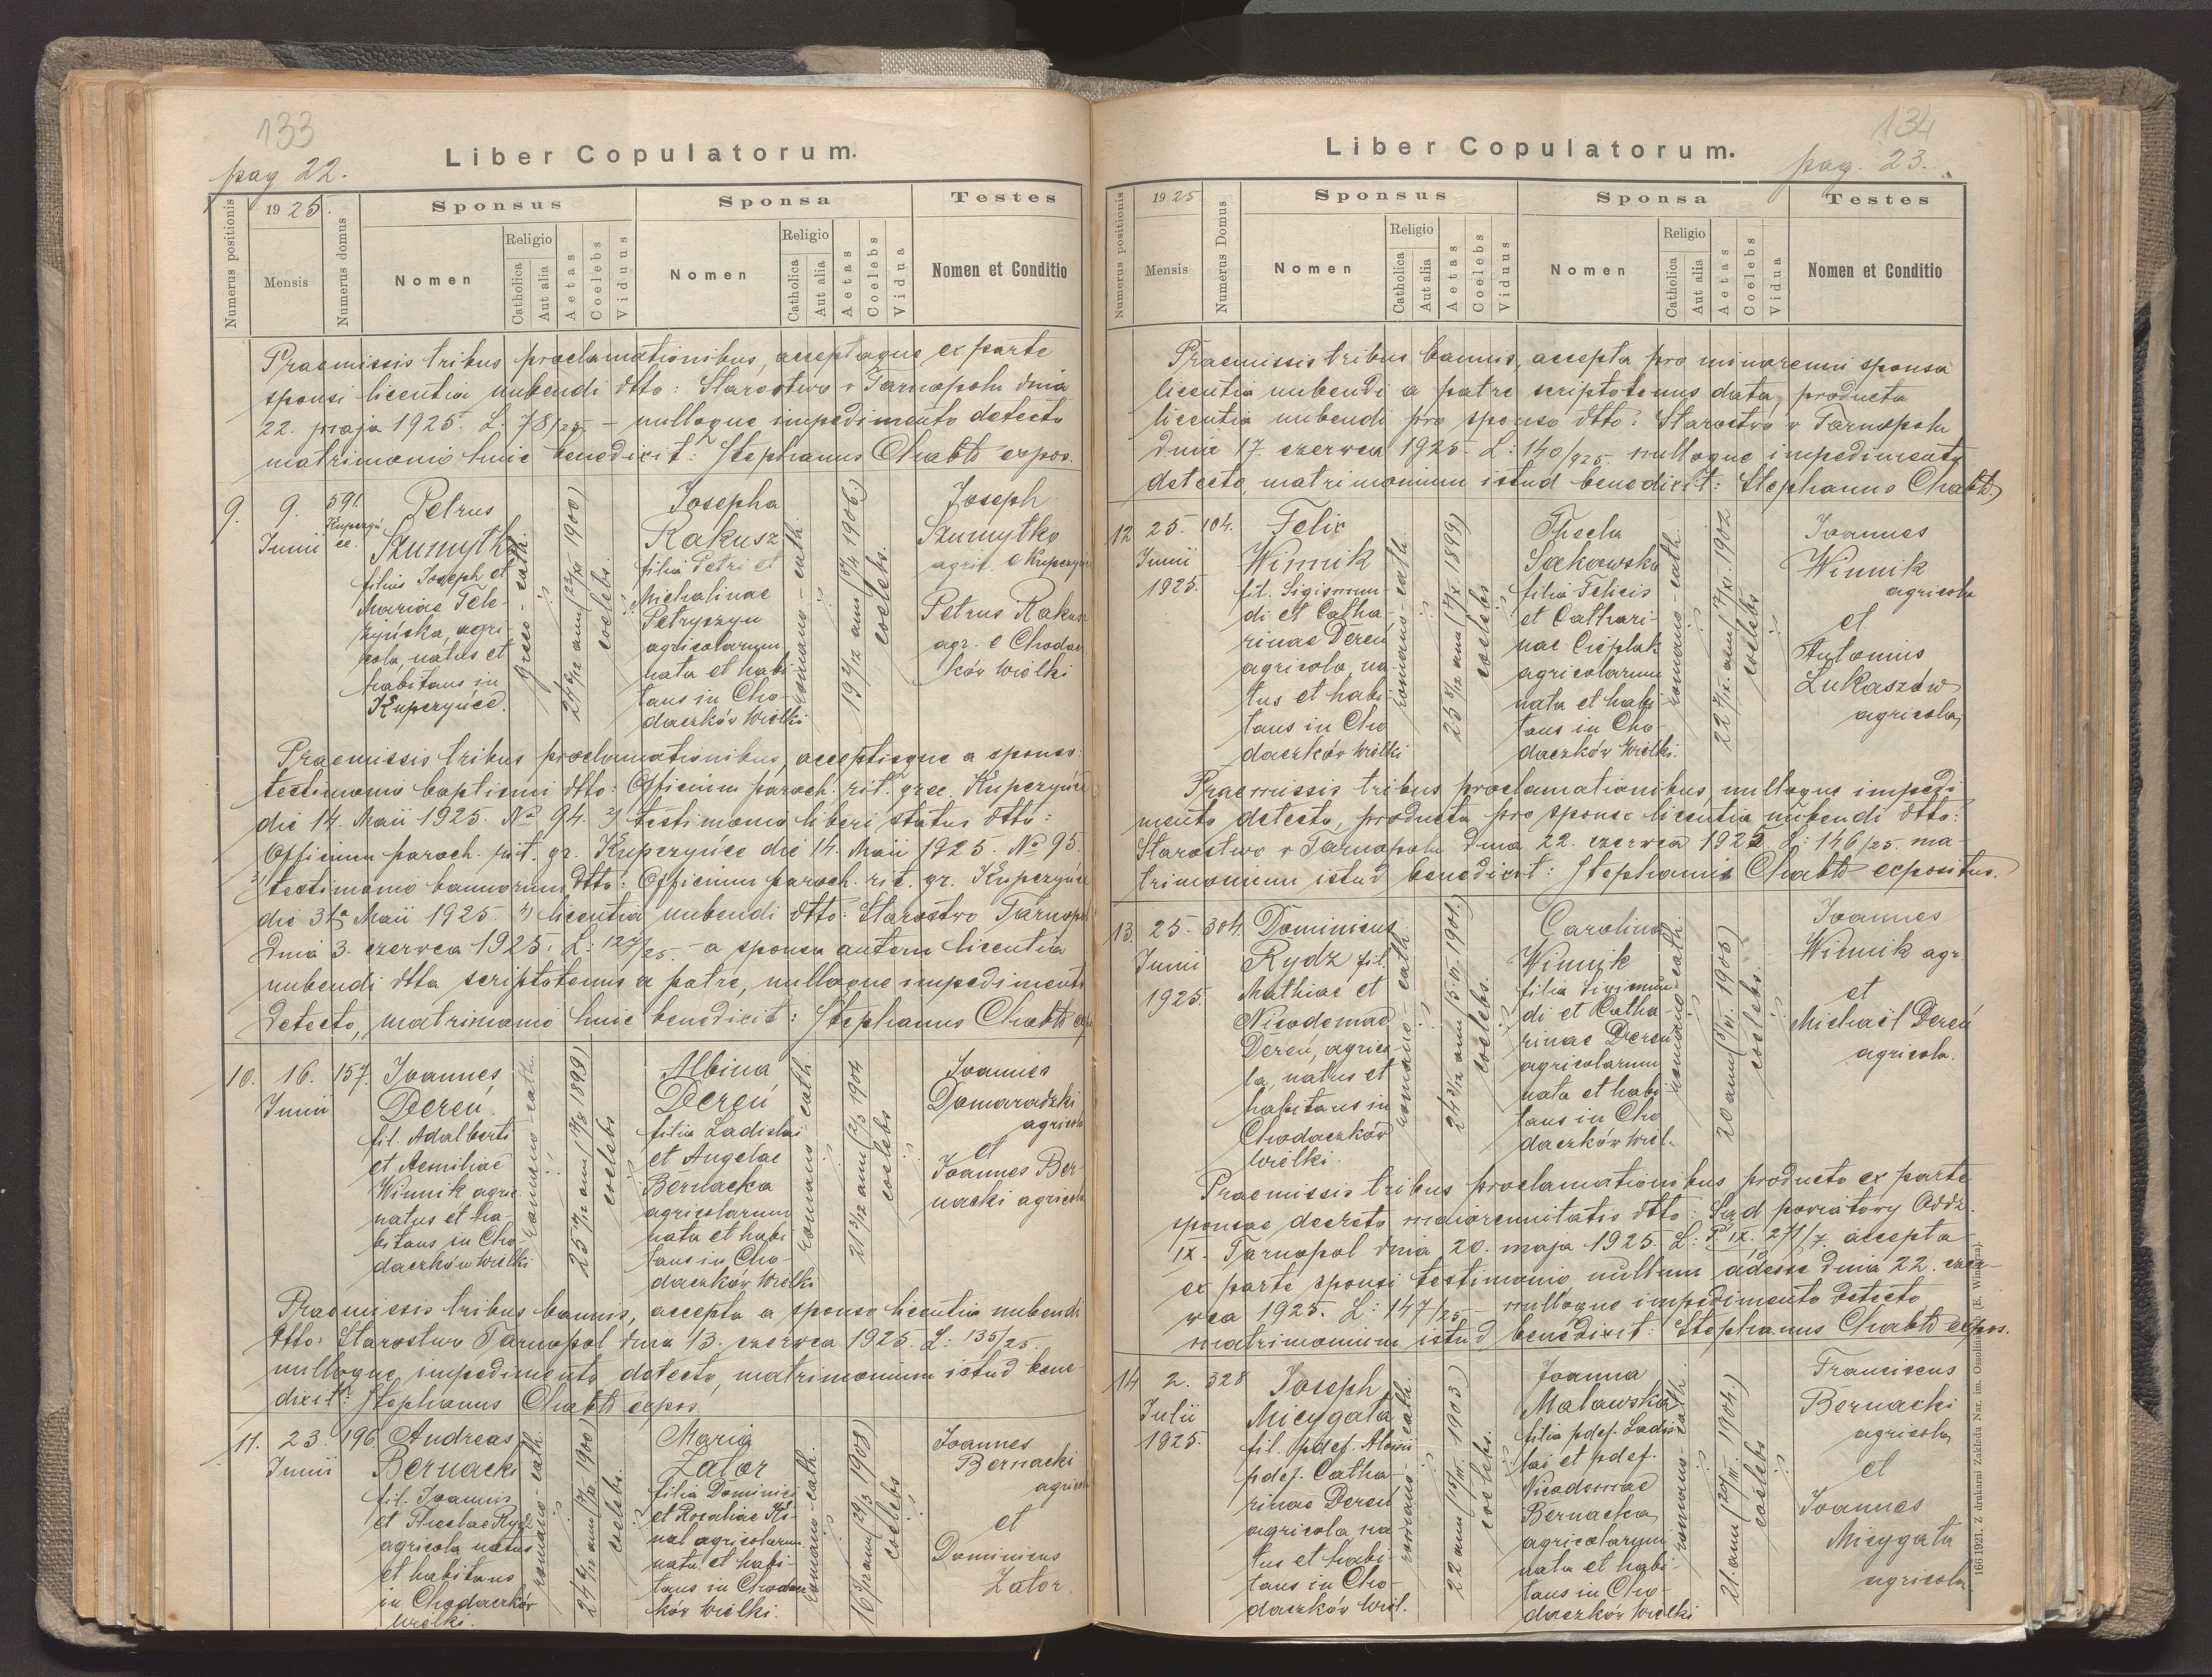 133
pag 22.
Liber Copulatorum.
Numerus positionis
1925.
Mensis
Numerus domus
Sponsus
Nomen
Religio
Catholica
Aut alia
Aetas
Coelebs
Viduus
Sponsa
Nomen
Religio
Catholica
Aut alia
Aetas
Coelebs
Vidua
Testes
Nomen et Conditio
Praemissis tribus proclamationibus, acceptaque ex parte
sponsi licentia nubendi dtto: Starostwo w Tarnopolu dnia
22. maja 1925. L. 78/25 - nulloque impedimento detecto
matrimonio huic benedixit: Stephanus expos.
9.
9.
Junii
591.
Petrus
Szumytko
filius Joseph et
Mariae
agri-
cola, natus et
habitans in
Kupczyńce.
greco - cath.
coelebs
Josepha
Rakusz
filia Petri et
Michalinae
Petryszyn
agricolarum
nata et habi-
tans in Cho-
daczków Wielki
romano - cath.
coelebs.
Joseph
Szumytko
agric. e
Petrus Rakusz
agr. e Chodacz
ków Wielki
Praemissis tribus proclamationibus, acceptisque a sponso:
testimonio baptismi dtto: Officium paroch. rit. grec. Kupczyńce
die 14. Maii 1925. No 94. 2) testimonio liberi status dtto:
Officium paroch. rit. gr. Kupczyńce die 14. Maii 1925. No 95.
3) testimonio bannorum dtto: Officium paroch. rit. gr. Kupczyńce
die 31a Maii 1925. 4) licentia nubendi dtto: Starostwo Tarnopol
dnia 3. czerwca 1925. L: 127/25. - a sponsa autem licentia
nubendi dtta scriptotenus a patre, nulloque impedimento
detecto, matrimonio huic benedixit: Stephanus
10.
16.
Junii
157.
Joannes
Dereń
fil. Adalberti
et Aemiliae
Winnik agric.
natus et ha-
bitans in Cho-
daczków Wielki
romano - cath.
coelebs
Albina
Dereń
filia Ladislai
et Angelae
Bernacka
agricolarum
nata et habi-
tans in Cho-
daczków Wielki
romano - cath.
coelebs
Joannes
Domaradzki
agricola
et
Joannes Ber-
nacki agricola
Praemissis tribus bannis, accepta a sponso licentia nubendi
dtto: Starostwo Tarnopol dnia 13. czerwca 1925. L: 135/25.
nulloque impedimento detecto, matrimonium istud bene-
dixit: Stephanus expos.
11.
23.
Junii
196
Andreas
Bernacki
fil. Joannis
et Theclae Rydz
agricola natus
et habitans
in Chodaczków
Wielki.
romano - cath.
coelebs.
Maria
Zator
filia Dominici
et Rosaliae Ki-
nal agricolarum
nata et habi-
tans in Chodacz
ków Wielki.
romano - cath.
coelebs
Joannes
Bernacki
agricola
et
Dominicus
Zator.
134
pag. 23.
Liber Copulatorum.
Numerus positionis
1925
Mensis
Numerus Domus
Sponsus
Nomen
Religio
Catholica
Aut alia
Aetas
Coelebs
Viduus
Sponsa
Nomen
Religio
Catholica
Aut alia
Aetas
Coelebs
Vidua
Testes
Nomen et Conditio
Praemissis tribus bannis, accepta pro minorenni sponsa
licentia nubendi a patre scriptotenus data, producta
licentia nubendi pro sponso dtto: Starostwo w Tarnopolu
dnia 17. czerwca 1925. L: 140/925. nulloque impedimento
detecto, matrimonium istud benedixit: Stephanus
12
25.
Junii
1925.
104.
Felix
Winnik
fil. Sigismun-
di et Catha-
rinae Dereń
agricola, na-
tus et habi-
tans in Cho
daczków Wielki
romano - cath.
coelebs
Thecla
Sakowska
filia Felicis
et Cathari-
nae Cieplak
agricolarum
nata et habi-
tans in Cho-
daczków Wielki.
romano - cath.
coelebs
Joannes
Winnik
agricola
et
Antonius
Lukaszów
agricola,
Praemissis tribus proclamationibus, nulloque impedi
mento detecto, producta pro sponso licentia nubendi dtto:
Starostwo w Tarnopolu dnia 22. czerwca 1925 L: 146/25. ma-
trimonium istud benedixit: Stephanus expositus.
13.
25.
Junii
1925.
304.
Dominicus
Rydz fil.
Mathiae et
Nicodemae
Dereń, agrico-
la, natus et
habitans in
Chodaczków
Wielki.
romano - cath.
coelebs.
Carolina
Winnik
filia Sigismun-
di et Catha-
rinae Dereń
agricolarum
nata et habi
tans in Cho
daczków Wiel.
romano - cath.
coelebs.
Joannes
Winnik agr.
et
Michaël Dereń
agricola.
Praemissis tribus proclamationibus producto ex parte
sponsae decreto maiorennitatis dtto: Sąd powiatowy Oddz.
IX. Tarnopol dnia 20. maja 1925. L: P. IX. 271/7. accepta
ex parte sponsi testimonio nullum adesse dnia 22. czer-
wca 1925. L: 147/25 - nulloque impedimento detecto
matrimonium istud benedixit: Stephanus expos.
14
2.
Julii
1925.
328
Joseph
Micygała
fil. pdef. Aloisii
pdef. Catha-
rinae Dereń
agricola na
tus et habi-
tans in Cho-
daczków Wiel.
romano - cath.
22 ann (15/III. 1903.)
coelebs.
Joanna
Malawska
filia pdef. Ladis-
lai et pdef.
Nicodemae
Bernacka,
agricolarum
nata et habi-
tans in Cho-
daczków Wielki
romano - cath
coelebs
Franciscus
Bernacki
agricola,
et
Joannes
Micygała
agricola
166.1921. Z drukarni Zakładu Nar. im. Ossolińskich (E. Winiarza).